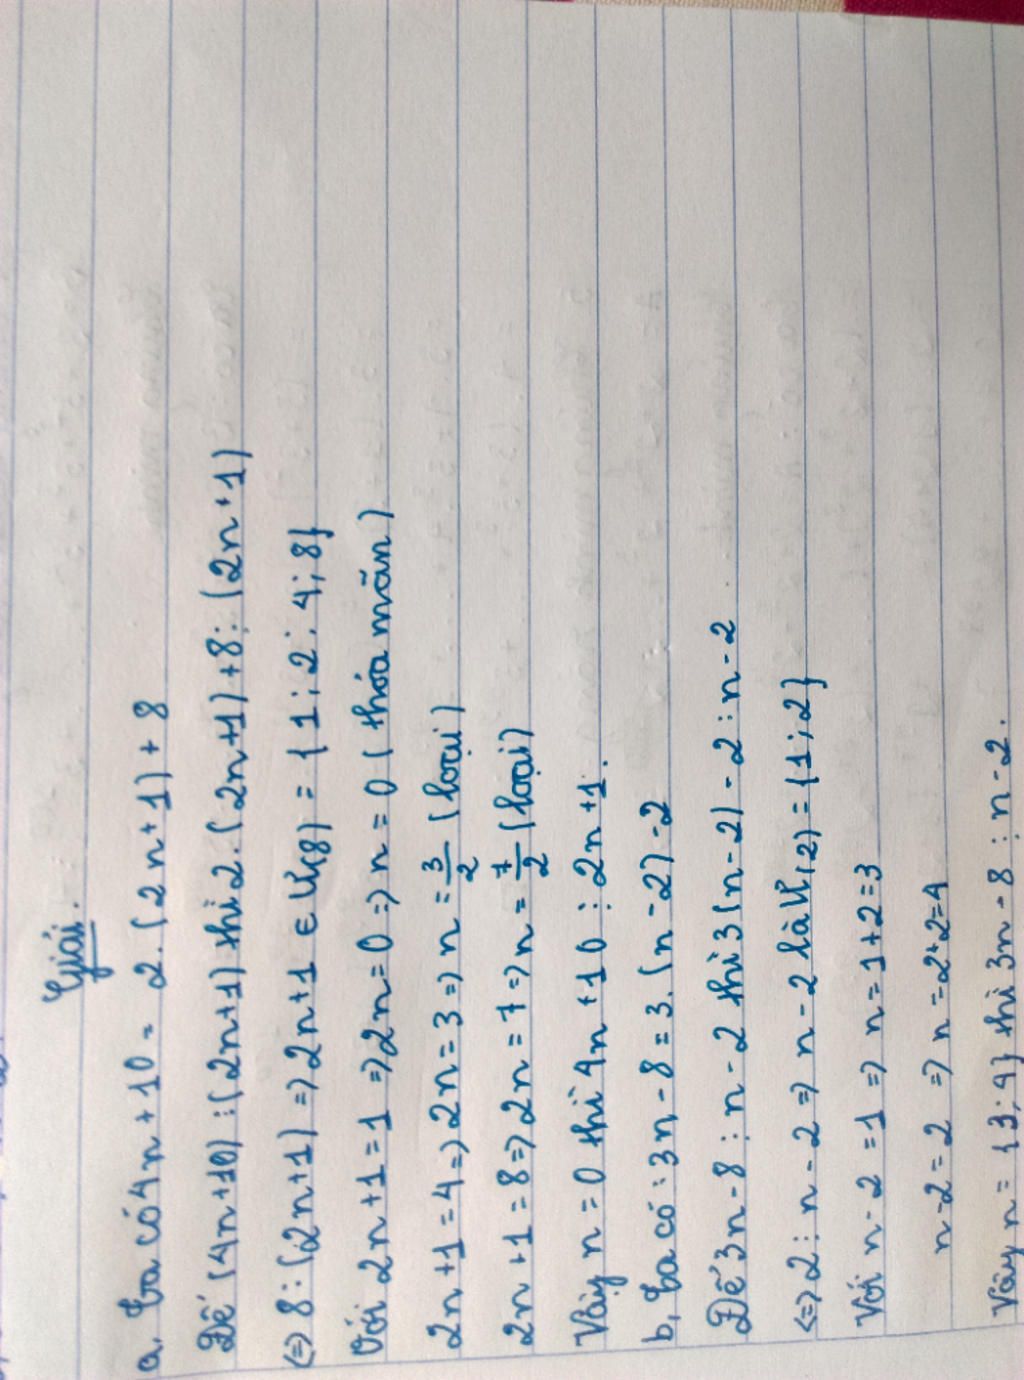 Giải:
a, Ta có 4n + 10 = 2.(2n+1) + 8
Để (4n+10) ⋮ (2n+1) thì 2.(2n+1) + 8 ⋮ (2n+1)
<=> 8 ⋮ (2n+1) => 2n+1 ∈ Ư(8) = {1; 2; 4; 8}
Với 2n+1 = 1 => 2n = 0 => n = 0 (thỏa mãn)
2n+1 = 4 => 2n = 3 => n = 3/2 (loại)
2n+1 = 8 => 2n = 7 => n = 7/2 (loại)
Vậy n = 0 thì 4n + 10 ⋮ 2n+1.
b, Ta có: 3n - 8 = 3.(n-2) - 2
Để 3n - 8 ⋮ n - 2 thì 3(n-2) - 2 ⋮ n - 2
<=> 2 ⋮ n - 2 => n - 2 là Ư(2) = {1; 2}
Với n - 2 = 1 => n = 1+2 = 3
n - 2 = 2 => n = 2+2 = 4
Vậy n = {3; 4} thì 3n - 8 ⋮ n - 2.